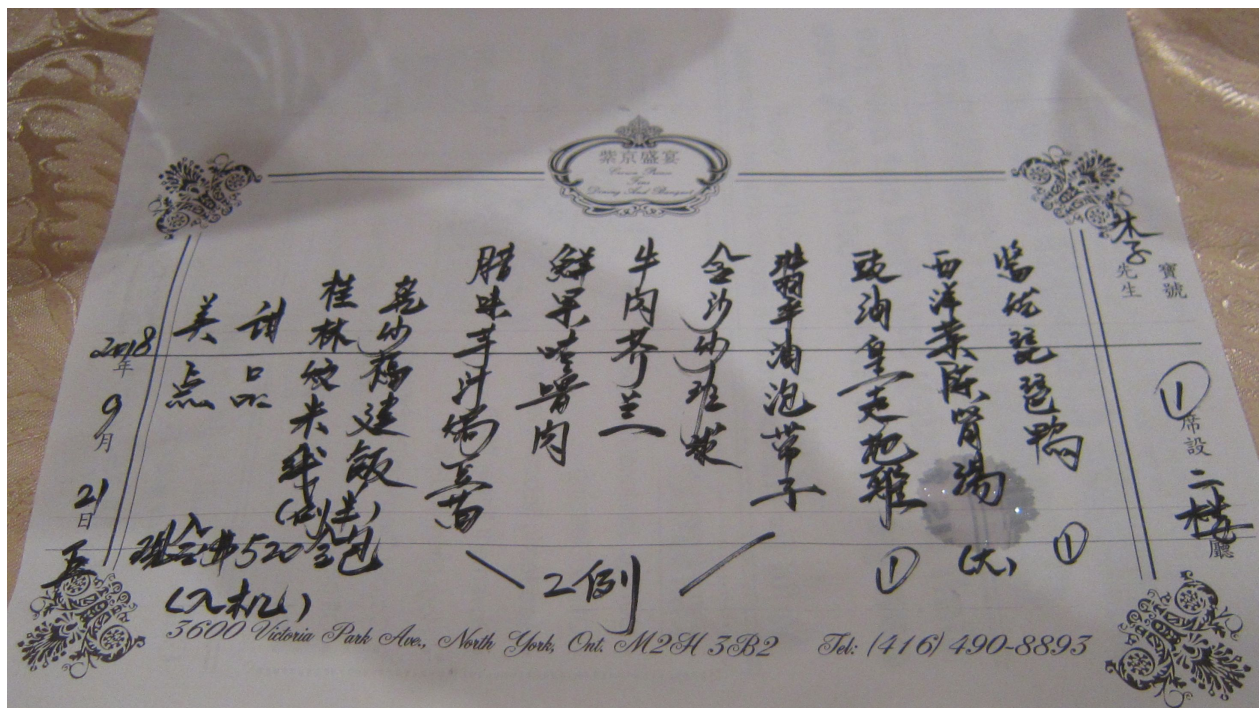 紫京盛宴
Crown Prince
Fine
Dining And Banquet
木子 先生 寶號
① 席設 二樓 廳
琵琶鴨 ①
西洋菜陳腎湯 (大)
豉油皇走地雞 ①
翡翠油泡带子
金沙沙班球
牛肉芥兰
鮮果咕嚕肉
腊味芋
2例
炒福建飯
桂林炆米
甜品
美点
520全包
(入机)
2018年 9月 21日 五
3600 Victoria Park Ave., North York, Ont. M2H 3B2 Tel: (416) 490-8893